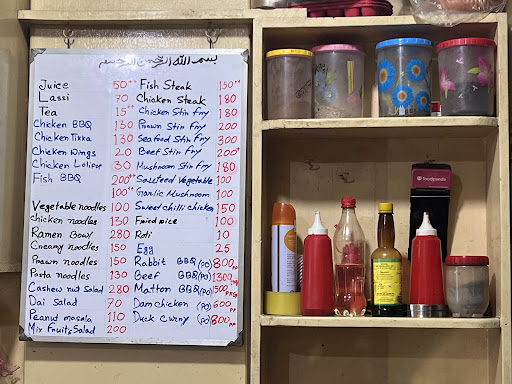 بسم الله الرحمن الرحيم
Juice 50++
Lassi 70
Tea 15++
Chicken BBQ 150
Chicken Tikka 130
Chicken Wings 20
Chicken Lolipop 30
Fish BBQ 200++
100++
Vegetable noodles 100
chicken noodles 130
Ramen Bowl 280
Creamy noodles 150
Prawn noodles 150
Pasta noodles 130
Cashew nut Salad 280
Dai Salad 70
Peanut masala 110
Mix Fruits Salad 200
Fish Steak 150++
Chicken Steak 180
Chicken Stir fry 180
Prawn Stir Fry 200
Seafood Stir Fry 300
Beef Stir Fry 200+
Mushroom Stir fry 180
Sauteed Vegetable 100
Garlic Mushroom 100
Sweet chilli chicken 150
Fried rice 100
Roti 10
Egg 25
Rabbit BBQ (PO) 800 PP
Beef BBQ (PO) 1300
Matton BBQ (PO) 1500 PKG
Dam chicken (PO) 600 PP
Duck Curry (PO) 800 PP
foodpanda